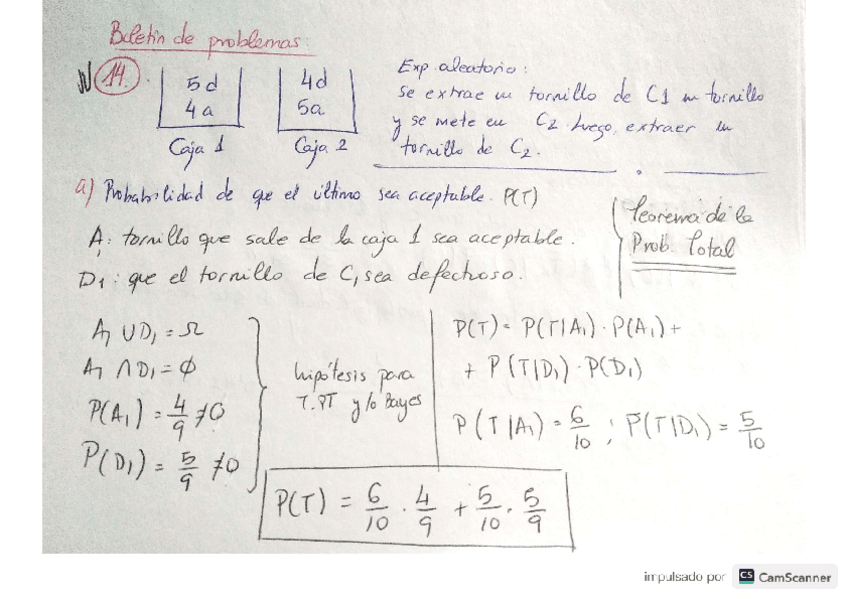 Boletín de problemas:
N 14.
5d
4a
Caja 1
4d
5a
Caja 2
Exp. aleatorio:
Se extrae un tornillo de C1 un tornillo
y se mete en C2. Luego, extraer un
tornillo de C2.
a) Probabilidad de que el último sea aceptable. P(T)
A1: tornillo que sale de la caja 1 sea aceptable.
D1: que el tornillo de C1 sea defectuoso.
Teorema de la
Prob. Total
A1 ∪ D1 = Ω
A1 ∩ D1 = ∅
P(A1) = 4/9 ≠ 0
P(D1) = 5/9 ≠ 0
hipótesis para
T.PT y/o Bayes
P(T) = P(T|A1) · P(A1) +
+ P(T|D1) · P(D1)
P(T|A1) = 6/10 ; P(T|D1) = 5/10
P(T) = 6/10 · 4/9 + 5/10 · 5/9
impulsado por CS CamScanner